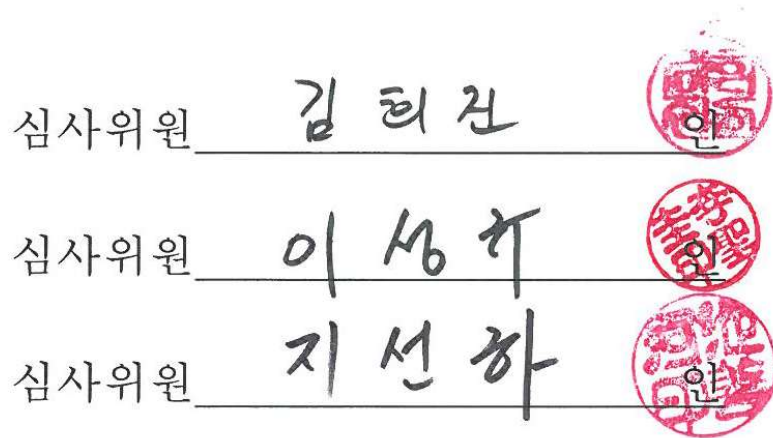 심사위원 김 희 진 인
심사위원 이 성 규 인
심사위원 지 선 하 인